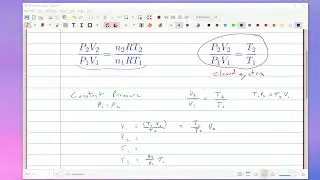 P₂V₂/P₁V₁ = n₂RT₂/n₁RT₁
P₂V₂/P₁V₁ = T₂/T₁
closed system
Constant Pressure
P₁ = P₂
V₂/V₁ = T₂/T₁
T₁V₂ = T₂V₁
V₁ = (T₁V₂)/T₂ = T₁/T₂ V₂
V₂ =
T₁ =
T₂ = V₂/V₁ T₁